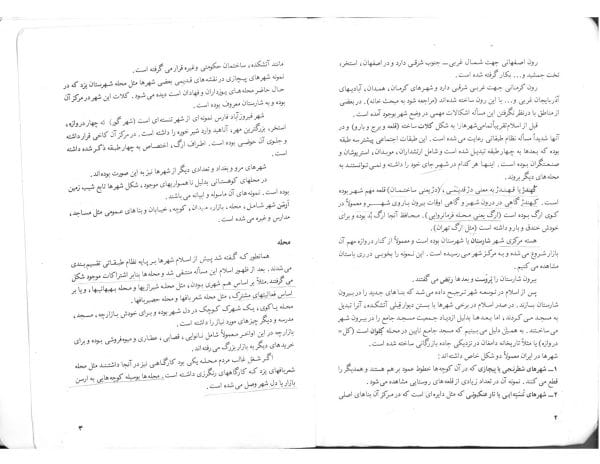 رون اصفهانی جهت شمال غربی ــ جنوب شرقی دارد و در اصفهان، استخر،
تخت جمشید و... بکار گرفته شده است.
رون کرمانی جهت غربی شرقی دارد و شهرهای کرمان، همدان، آبادیهای
آذربایجان غربی و... با این رون ساخته شده‌اند (مراجعه شود به مبحث خانه). در بعضی
از مناطق با در نظر نگرفتن این مسأله اشکالات مهمی در وضع شهر بوجود آمده است.
قبل از اسلام تقریباً تمامی شهرها به شکل کلات ساخته (قلعه و برج و بارو) و در
آنها شدیداً مسأله نظام طبقاتی رعایت می شده است. این طبقات اجتماعی پیشتر سه طبقه
بوده که بعدها به چهار طبقه تبدیل شده است و شامل ارتشداران، موبدان، استریوشان و
صنعتگران بوده است. اینها هر کدام در شهر جای خود را داشته و نمی توانستند به
محله های دیگر بروند.
کهندژ یا قهندز به معنی دژ قدیمی، (دژ یعنی ساختمان) قلعه مهم شهر بوده
است. کهندژ گاهی در درون شهر و گاهی اوقات بیرون باروی شهر بوده و معمولاً در
کوی ارگ بوده است (ارگ یعنی محله فرمانروایی). محافظ آنجا ارگ بُد بوده و برای
خودش خندق و بارو داشته است (مثل ارگ تهران).
هسته مرکزی شهر شارستان یا شهرستان بوده است و معمولاً از کنار دروازه مهم آن
بازار شروع می شده و به مرکز شهر می رسیده است. این نمونه را بخوبی در ری باستان
مشاهده می کنیم.
بیرون شارستان را بَرْوَست و بعدها رَبَض می گفتند.
پس از اسلام در توسعه شهر ترجیح داده می شد که بناهای جدید را در بیرون
شارستان بسازند. در صدر اسلام در برخی شهرها با بستن دیوار قبلی آتشکده، آنرا تبدیل
به مسجد می کردند، اما بعدها بدلیل ازدیاد جمعیت مسجد جامع را در بیرون شهر
می ساختند. به همین دلیل می بینیم که مسجد جامع نایین در محله کلوان است (کل=
دروازه) یا مثلاً تاریخانه دامغان در نزدیکی جاده بازرگانی ساخته شده است.
شهرها در ایران معمولاً دو شکل خاص داشته‌اند:
۱ــ شهرهای شطرنجی یا پیچازی که در آن کوچه‌ها خطوط عمود بر هم هستند و همدیگر را
قطع می کنند. نمونه آن در تعداد زیادی از قلعه های روستایی مشاهده می شود.
۲ــ شهرهای تنسته‌ایی یا تار عنکبوتی که مثل دایره‌ای است که در مرکز آن بناهای اصلی
۲
مانند آتشکده، ساختمان حکومتی و غیره قرار می گرفته است.
نمونه شهرهای پیچازی در نقشه های قدیمی بعضی شهرها مثل محله شهرستان یزد که در
حال حاضر محله های یوزداران و فهادان است دیده می شود. کلات این شهر در مرکز آن
بوده و به شارستان معروف بوده است.
شهر فیروزآباد فارس نمونه ای از شهر تنسته ای است (شهر گور) که چهار دروازه،
استخر، بزرگترین مهر، آناهید وارد شیر خوره را داشته است. در مرکز آن کاخی قرار داشته
و جلوی آن حوضی بوده است. اطراف ارگ، اختصاص به چهار طبقه ذکر شده داشته
است.
شهرهای مرو و بغداد و تعدادی دیگر از شهرها نیز به این صورت بوده‌اند.
در محلهای کوهستانی بدلیل ناهمواریهای موجود، شکل شهرها تابع شیب زمین
بوده است. نمونه های آن ماسوله و ابیانه می باشند.
اُرسن شهر شامل، محله، بازار، میدان، کوچه، خیابان و بناهای عمومی مثل مساجد،
مدارس و غیره می شده است.
محله
همانطور که گفته شد پیش از اسلام شهرها بر پایه نظام طبقاتی تقسیم بندی
می شدند. بعد از ظهور اسلام این مسأله منتفی شد و محله‌ها بنابر اشتراکات موجود شکل
می گرفتند. مثلاً بر اساس هم شهری بودن، مثل محله شیرازیها و محله بهبهانیها، و یا بر
اساس فعالیتهای مشترک، مثل محله شعربافها و محله حصیربافها.
محله یا کوی، یک شهرک کوچک در دل شهر بوده و برای خودش بازارچه، مسجد،
مدرسه و دیگر چیزهای مورد نیاز را داشته است.
بازارچه در این اواخر معمولاً شامل نانوایی، قصابی، عطاری و میوه فروشی بوده و برای
خریدهای دیگر به بازار بزرگ می رفته اند.
اگر شغل غالب مردم محله یکی بود کارگاهی نیز در آنجا داشتند مثل محله
شعربافهای یزد که کارگاههای رنگرزی داشته است. محله‌ها بوسیله کوچه‌هایی به ارسن
بازار یا دل شهر وصل می شده است.
۳